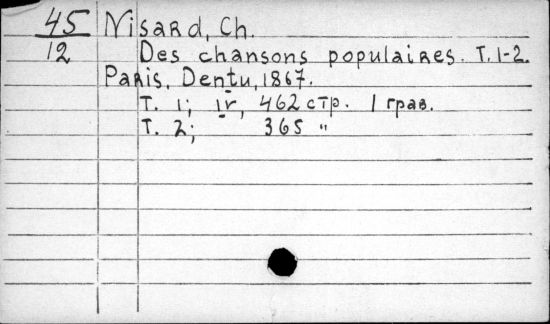 45 Nisard, Ch.
12 Des chansons populaires. T. 1-2.
Paris, Dentu, 1867.
T. 1; 462 стр. 1 грав.
T. 2; 365 "